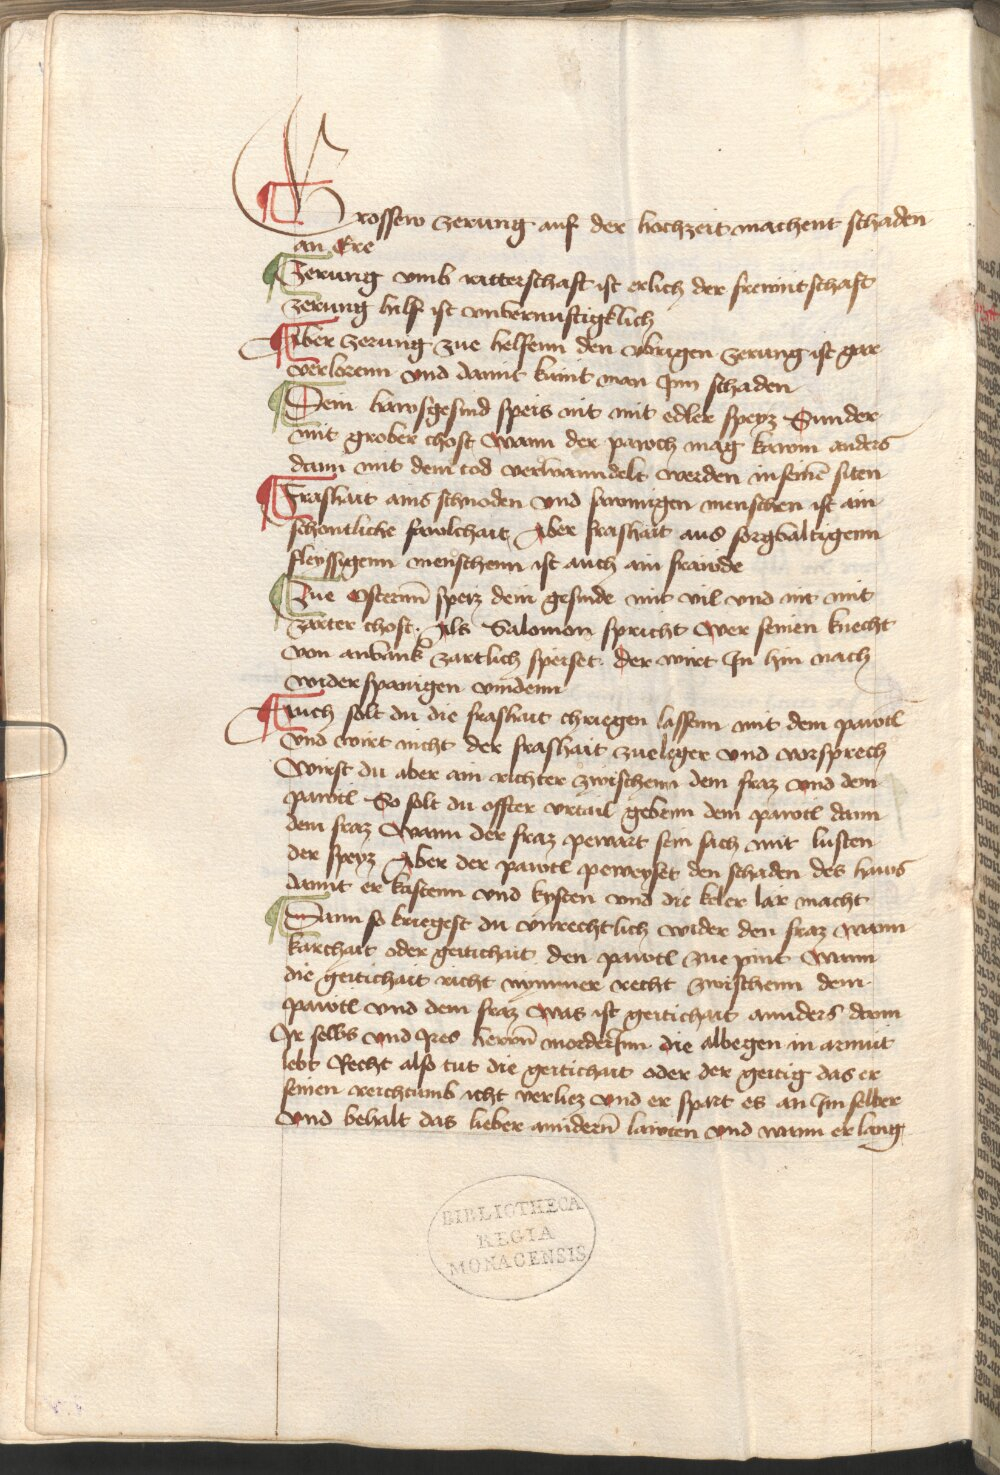 Grossew zerung auf der hochzeit machent schaden
an Ere
Zerung vmb ritterschaft ist erlich der frewntschaft
zerung hilf ist vnvernuftigklich
Aber zerung zue helfenn den vbrigen zerung ist gar
verlorenn vnd damit kumt man Inn schaden
Dein hawsgesind speis nit mit edler speyz Sunder
mit grober chost Wann der pawch mag kawm anders
dann mit dem tod verwanndelt werden in seine siten
Frashait ains schnoden vnd sawmigen menschen ist ain
schentliche fawlchait Aber frashait aus sorgualtigenn
fleyssigenn menschenn ist auch ain frawde
Zue Osternn speiz dein gesinde mit vil vnd nit mit
zarter chost. Als Salomon spricht Wer seinen knecht
von anvank zartlich speiset. der wirt In hin nach
widerspanigen vindenn
Auch solt du die frashait chriegen lassenn mit dem pawtl
vnd wirt nicht der frashait zueleger vnd vorsprech
Wirst du aber ain richter zwischenn dem fraz vnd dem
pawtl So solt du offter vrtail gebenn dem pawtl dann
dem fraz Wann der fraz pewart sein sach mit lusten
der speyz Aber der pawtl peweyset den schaden des haws
damit er kastenn vnd kysten vnd die keler lär macht
Dann so kriegest du vnrechtlich wider den fraz wann
karchait oder geitichait den pawtl zue pint Wann
die geitichait richt nymmer recht zwischenn dem
pawtl vnd dem fraz Was ist geitichait annders dann
Ir selbs vnd Ires herrn morderInn die albegen in armüt
lebt Recht also tut die geitichait oder der geitig das er
seinen reichtumb icht verliez vnd er spart es an Im selber
vnd behalt das lieber anndern lawten vnd wann er lang
BIBLIOTHECA
REGIA
MONACENSIS